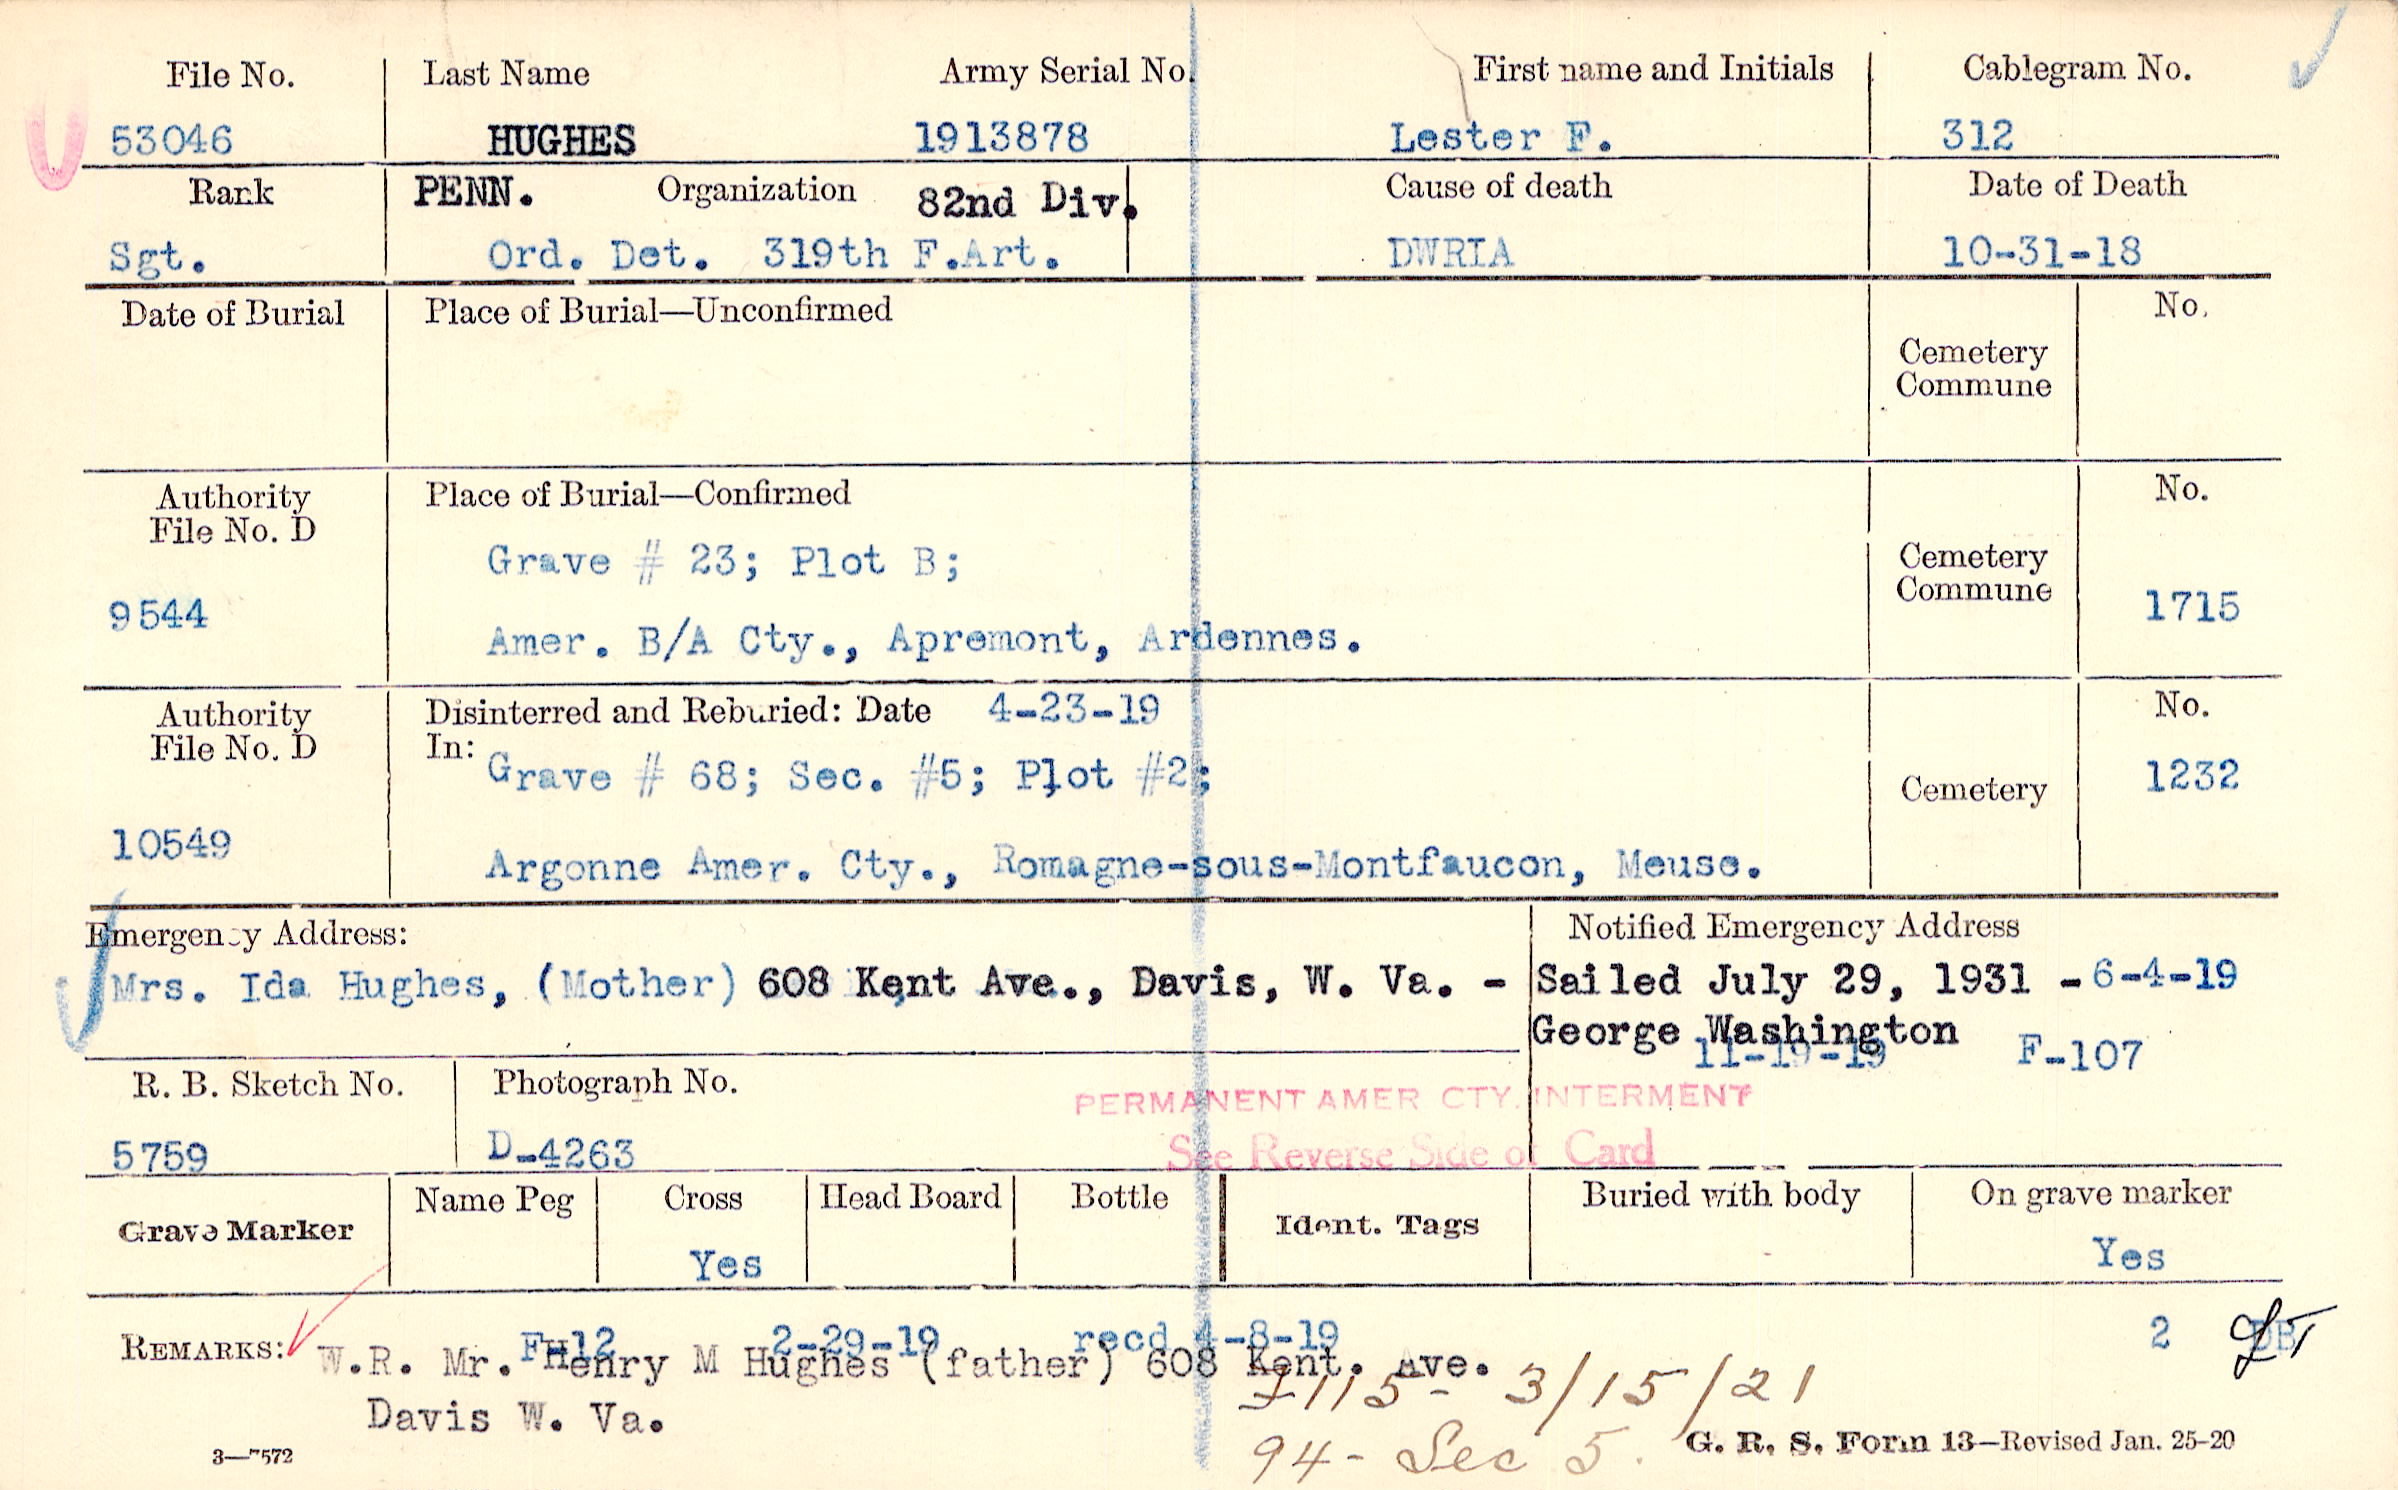 File No. Last Name Army Serial No. First name and Initials Cablegram No.
53046 HUGHES 1913878 Lester F. 312
Rank PENN. Organization 82nd Div. Cause of death Date of Death
Sgt. Ord. Det. 319th F.Art. DWRIA 10-31-18
Date of Burial Place of Burial—Unconfirmed No.
Cemetery
Commune
Authority Place of Burial—Confirmed No.
File No. D
Grave # 23; Plot B; Cemetery
Commune
9544 1715
Amer. B/A Cty., Apremont, Ardennes.
Authority Disinterred and Reburied: Date 4-23-19 No.
File No. D In:
Grave # 68; Sec. #5; Plot #2; 1232
Cemetery
10549
Argonne Amer. Cty., Romagne-sous-Montfaucon, Meuse.
Emergency Address: Notified Emergency Address
Mrs. Ida Hughes, (Mother) 608 Kent Ave., Davis, W. Va. - Sailed July 29, 1931 - 6-4-19
George Washington
11-19-19 F-107
R. B. Sketch No. Photograph No.
PERMANENT AMER CTY. INTERMENT
5759 D-4263 See Reverse Side of Card
Name Peg Cross Head Board Bottle Buried with body On grave marker
Grave Marker Ident. Tags
Yes Yes
REMARKS: F-12 2-29-19 recd 4-8-19 2
W.R. Mr. Henry M Hughes (father) 608 Kent. Ave.
115- 3/15/21
Davis W. Va.
94- Sec 5.
3—7572 G. R. S. Form 13—Revised Jan. 25-20